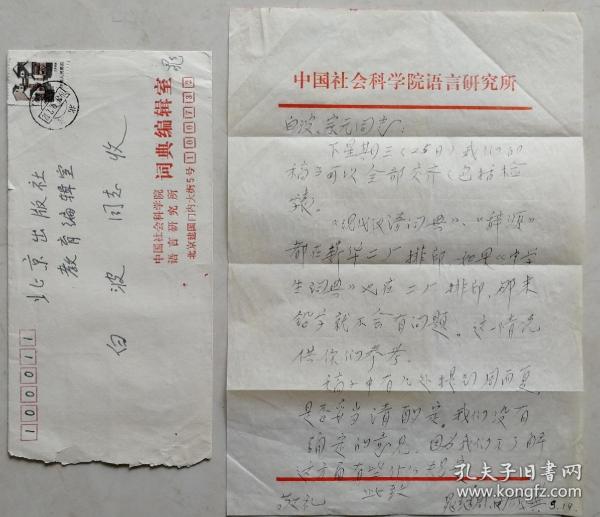 100011
北京出版社
教育编辑室
白波 同志 收
中国社会科学院
语言研究所
词典编辑室
北京建国门内大街5号
100732
北
中国社会科学院语言研究所
白波、宗元同志:
下星期三(25日)我们的
稿子可以全部交齐(包括检
《现代汉语词典》、《辞源》
都在新华二厂排印,如果《中学
生词典》也在二厂排印,那末
铅字就不会有问题。这一情况
供你们参考。
稿子中有几处提到周而复,
是否妥当请酌定。我们没有
确定的意见,因为我们不了解
这方面有些什么
此致
敬礼
9.19.
孔夫子旧书网
www.kongfz.com